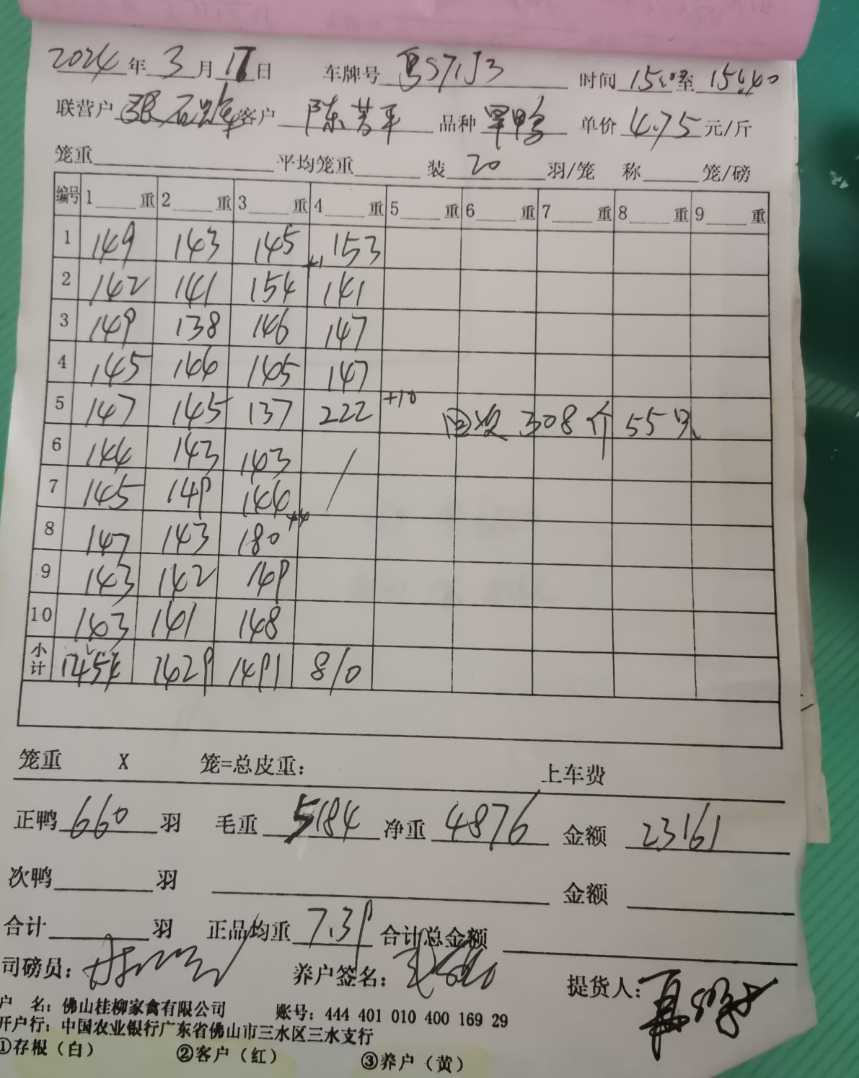 2024 年 3 月 17 日 车牌号 时间 15:0 至 15:40
联营户 客户 陈芳平 品种 单价 4.75 元/斤
笼重 平均笼重 装 20 羽/笼 称 笼/磅
编号 1 重 2 重 3 重 4 重 5 重 6 重 7 重 8 重 9 重
1 149 143 145 153
2 142 141 154 141
3 149 138 146 147
4 145 144 145 147
5 147 145 137 222 +10 回收 308 斤 55只
6 144 143 143 /
7 145 149 144
8 147 143 180
9 143 142 149
10 143 141 148
小计 1454 1429 1491 810
笼重 X 笼=总皮重: 上车费
正鸭 660 羽 毛重 5184 净重 4876 金额 23161
次鸭 羽 金额
合计 羽 正品均重 7.39 合计总金额
司磅员: 养户签名: 提货人:
户 名: 佛山桂柳家禽有限公司 账号: 444 401 010 400 169 29
开户行: 中国农业银行广东省佛山市三水区三水支行
①存根（白） ②客户（红） ③养户（黄）